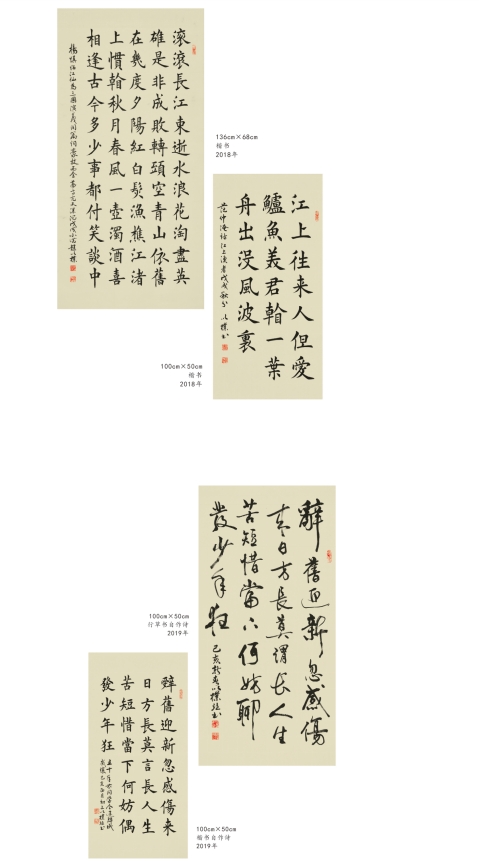 滚滚長江東逝水浪花淘盡英
雄是非成敗轉頭空青山依舊
在幾度夕陽紅白髮漁樵江渚
上慣看秋月春風一壺濁酒喜
相逢古今多少事都付笑談中
楊慎臨江仙為三國演義開篇詞
136cm×68cm
楷书
2018年
江上往来人但愛
鱸魚美君看一葉
舟出没風波裏
范仲淹詠江上漁者戊戌秋分 以樸书
100cm×50cm
楷书
2018年
辭舊迎新忽感傷
来日方長莫謂長人生
苦短惜當下何妨聊
發少年狂
己亥
100cm×50cm
行草书自作诗
2019年
辭舊迎新忽感傷来
日方長莫言長人生
苦短惜當下何妨偶
發少年狂
100cm×50cm
楷书自作诗
2019年